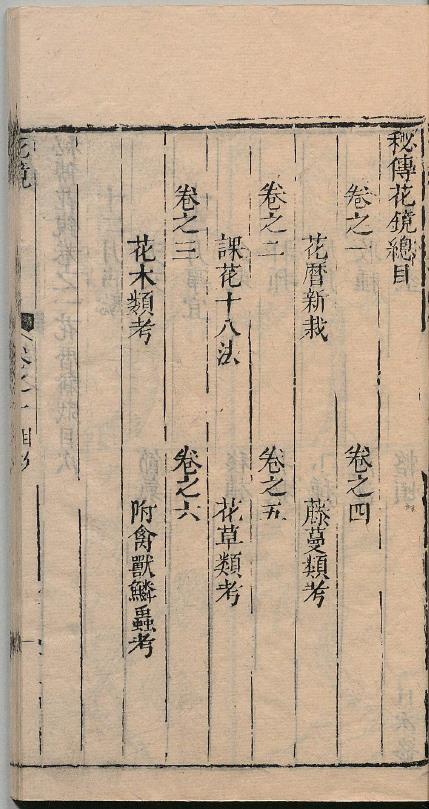 秘傳花鏡總目
卷之一
花曆新栽
卷之二
課花十八法
卷之三
花木類考
卷之四
藤蔓類考
卷之五
花草類考
卷之六
附禽獸鱗蟲考
花鏡